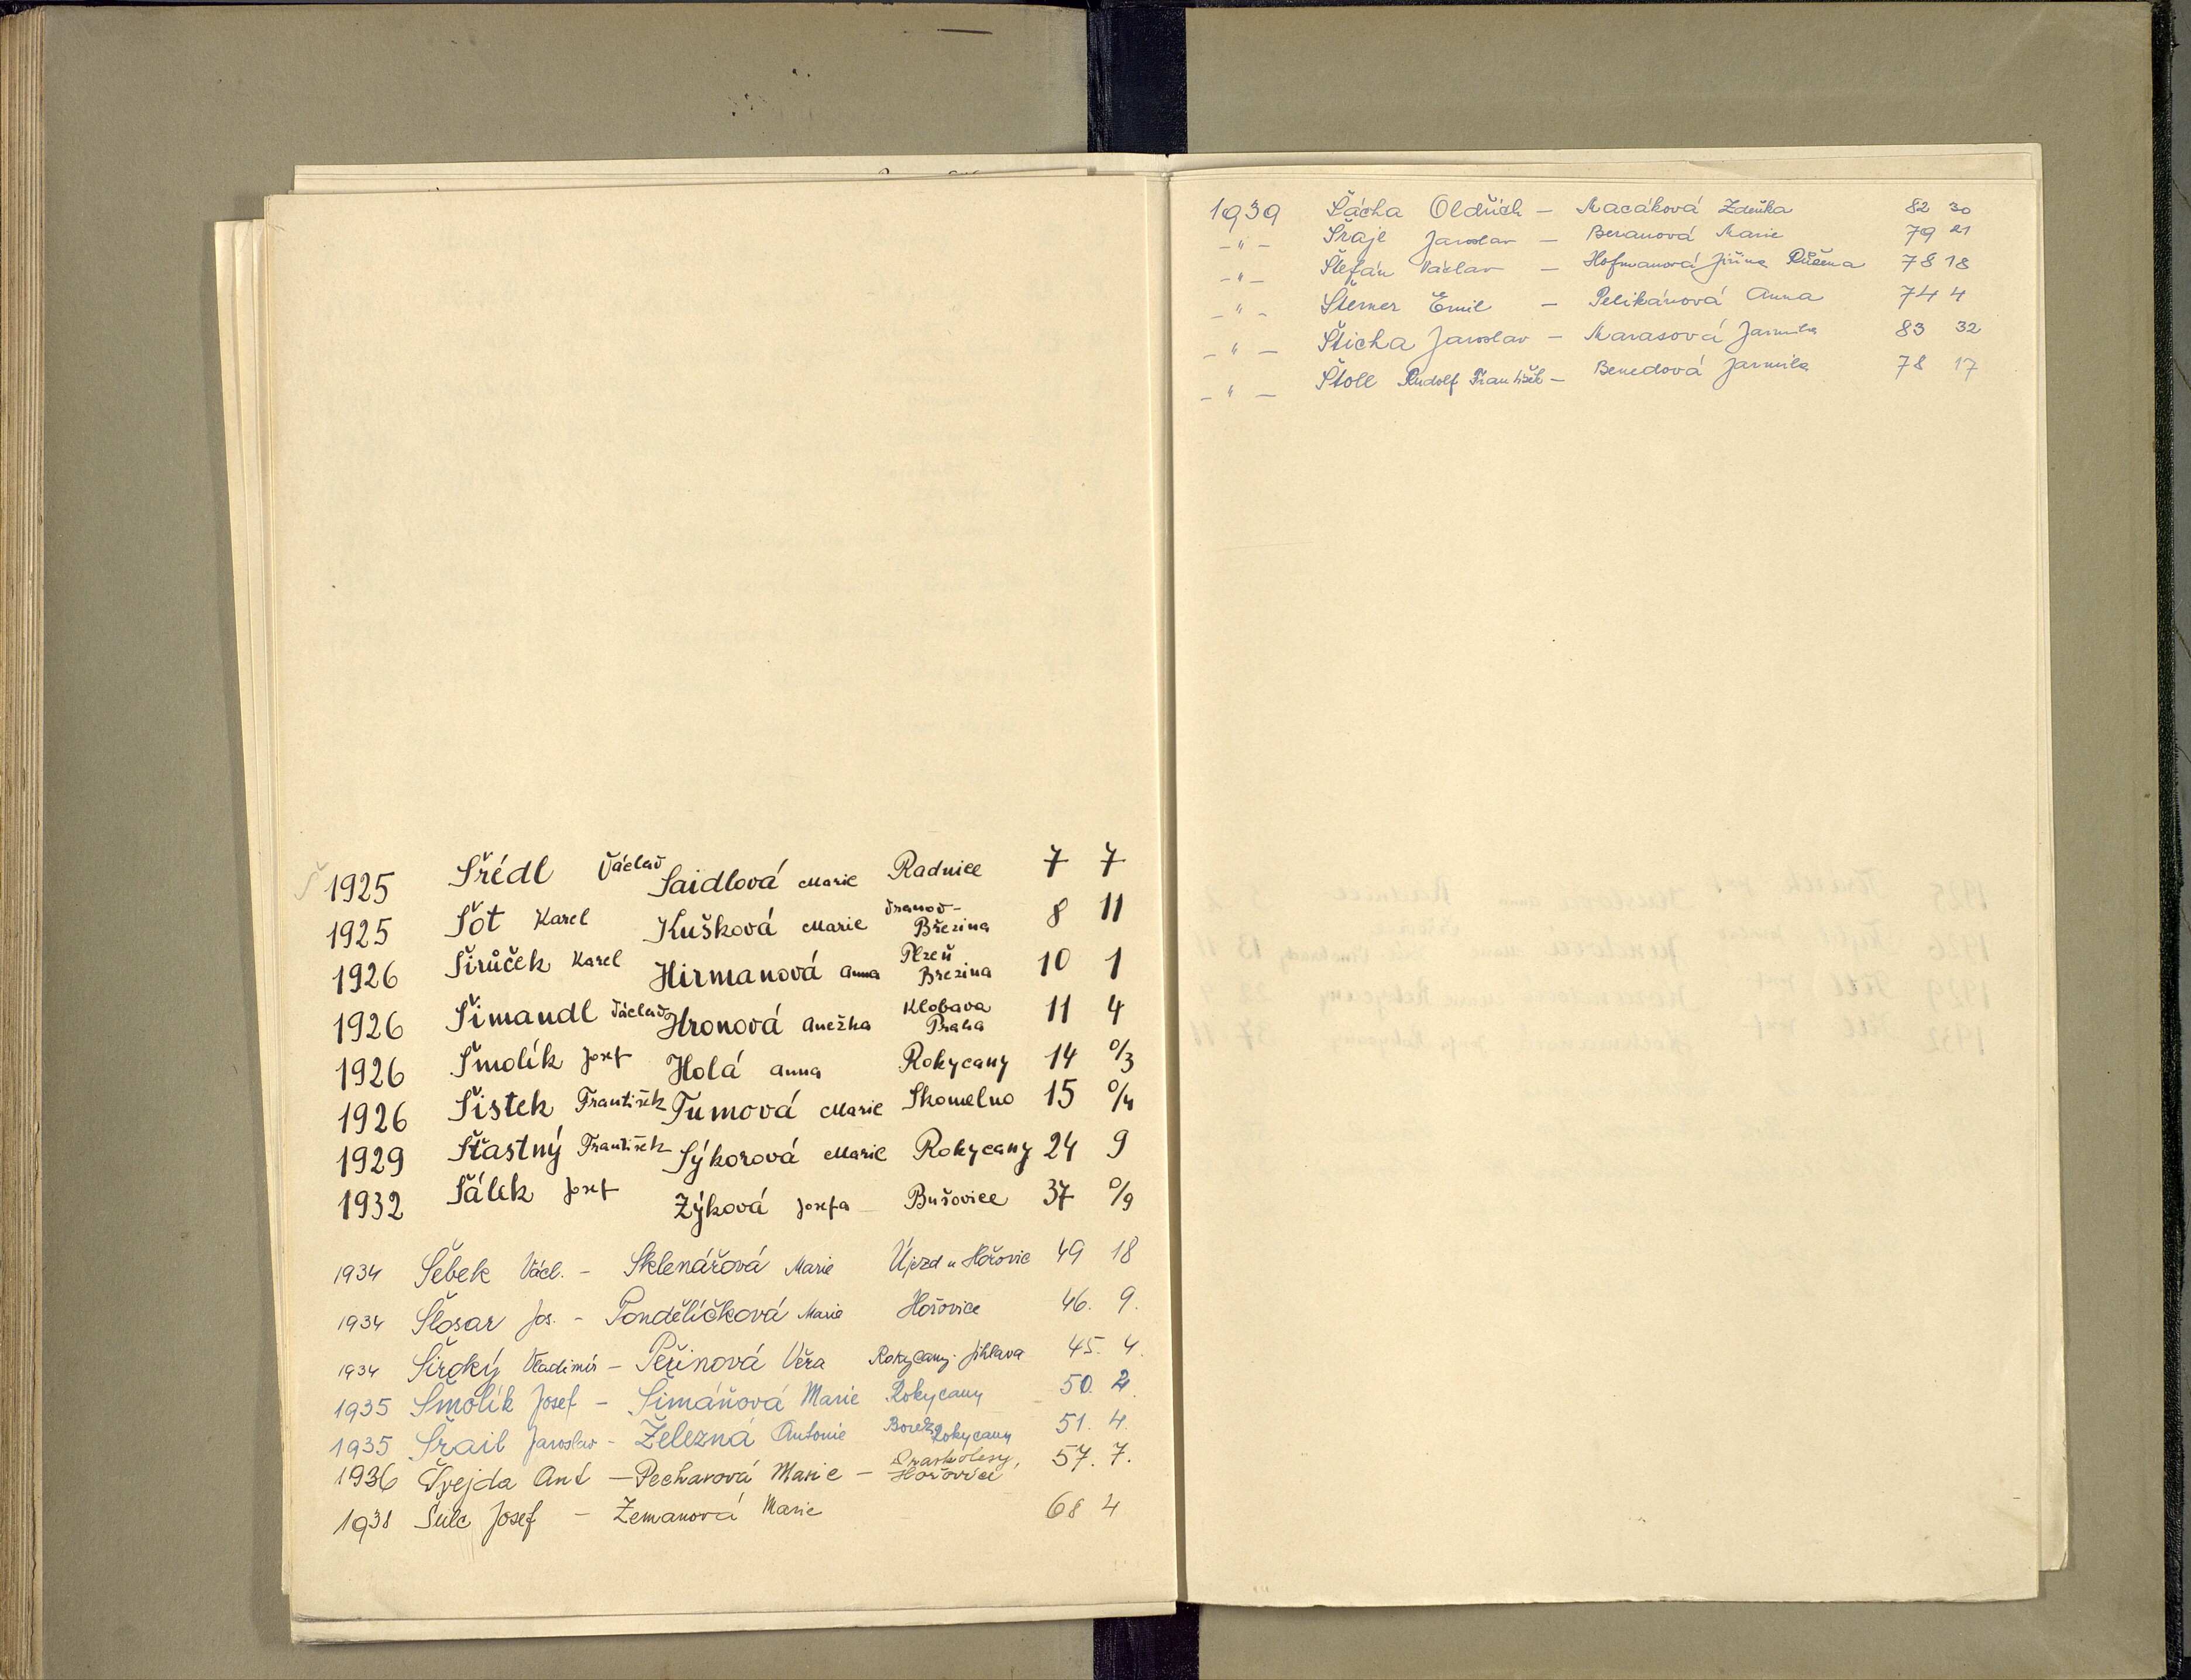 Š 1925 Šrédl Václav Saidlová Marie Radnice 7 7
1925 Šot Karel Kušková Marie Vranov-Březina 8 11
1926 Širůček Karel Hirmanová Anna Plzeň Březina 10 1
1926 Šimandl Václav Hronová Anežka Klobava Praha 11 4
1926 Šmolík Josef Holá Anna Rokycany 14 0/3
1926 Šistek František Tumová Marie Skomelno 15 0/4
1929 Šťastný František Sýkorová Marie Rokycany 24 9
1932 Šálek Josef Zýková Josefa Bušovice 37 0/9
1934 Šebek Václ. - Sklenářová Marie Újezd u Hořovic 49 18
1934 Šlosar Jos. - Pondělíčková Marie Hořovice 46. 9.
1934 Široký Vladimír - Peřinová Věra Rokycany - Jihlava 45. 4.
1935 Šmolík Josef - Šimáňová Marie Rokycany 50. 2.
1935 Šrail Jaroslav - Železná Antonie Borek Rokycany 51. 4.
1936 Švejda Ant - Pecharová Marie - Praskolesy, Hořovice 57. 7.
1938 Šulc Josef - Zemanová Marie 68 4
1939 Šácha Oldřich - Macáková Zdeňka 82 30
-"- Šraje Jaroslav - Beranová Marie 79 21
-"- Štefan Václav - Hofmanová Jiřina Růžena 78 18
-"- Šterner Emil - Pelikánová Anna 74 4
-"- Šticha Jaroslav - Marasová Jarmila 83 32
-"- Štoll Rudolf František - Benedová Jarmila 78 17